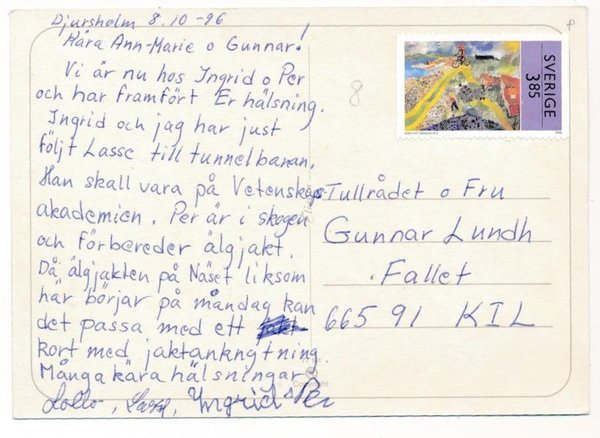 Djursholm 8.10-96
Kära Ann-Marie o Gunnar!
Vi är nu hos Ingrid o Per
och har framfört Er hälsning.
Ingrid och jag har just
följt Lasse till tunnelbanan.
Han skall vara på Vetenskaps-
akademien. Per är i skogen
och förbereder älgjakt.
Då älgjakten på Näset liksom
här börjar på måndag kan
det passa med ett
kort med jaktanknytning.
Många kära hälsningar
Lollo, Lasse, Ingrid o Per
8
SVERIGE
385
Tullrådet o Fru
Gunnar Lundh
Fallet
665 91 KIL